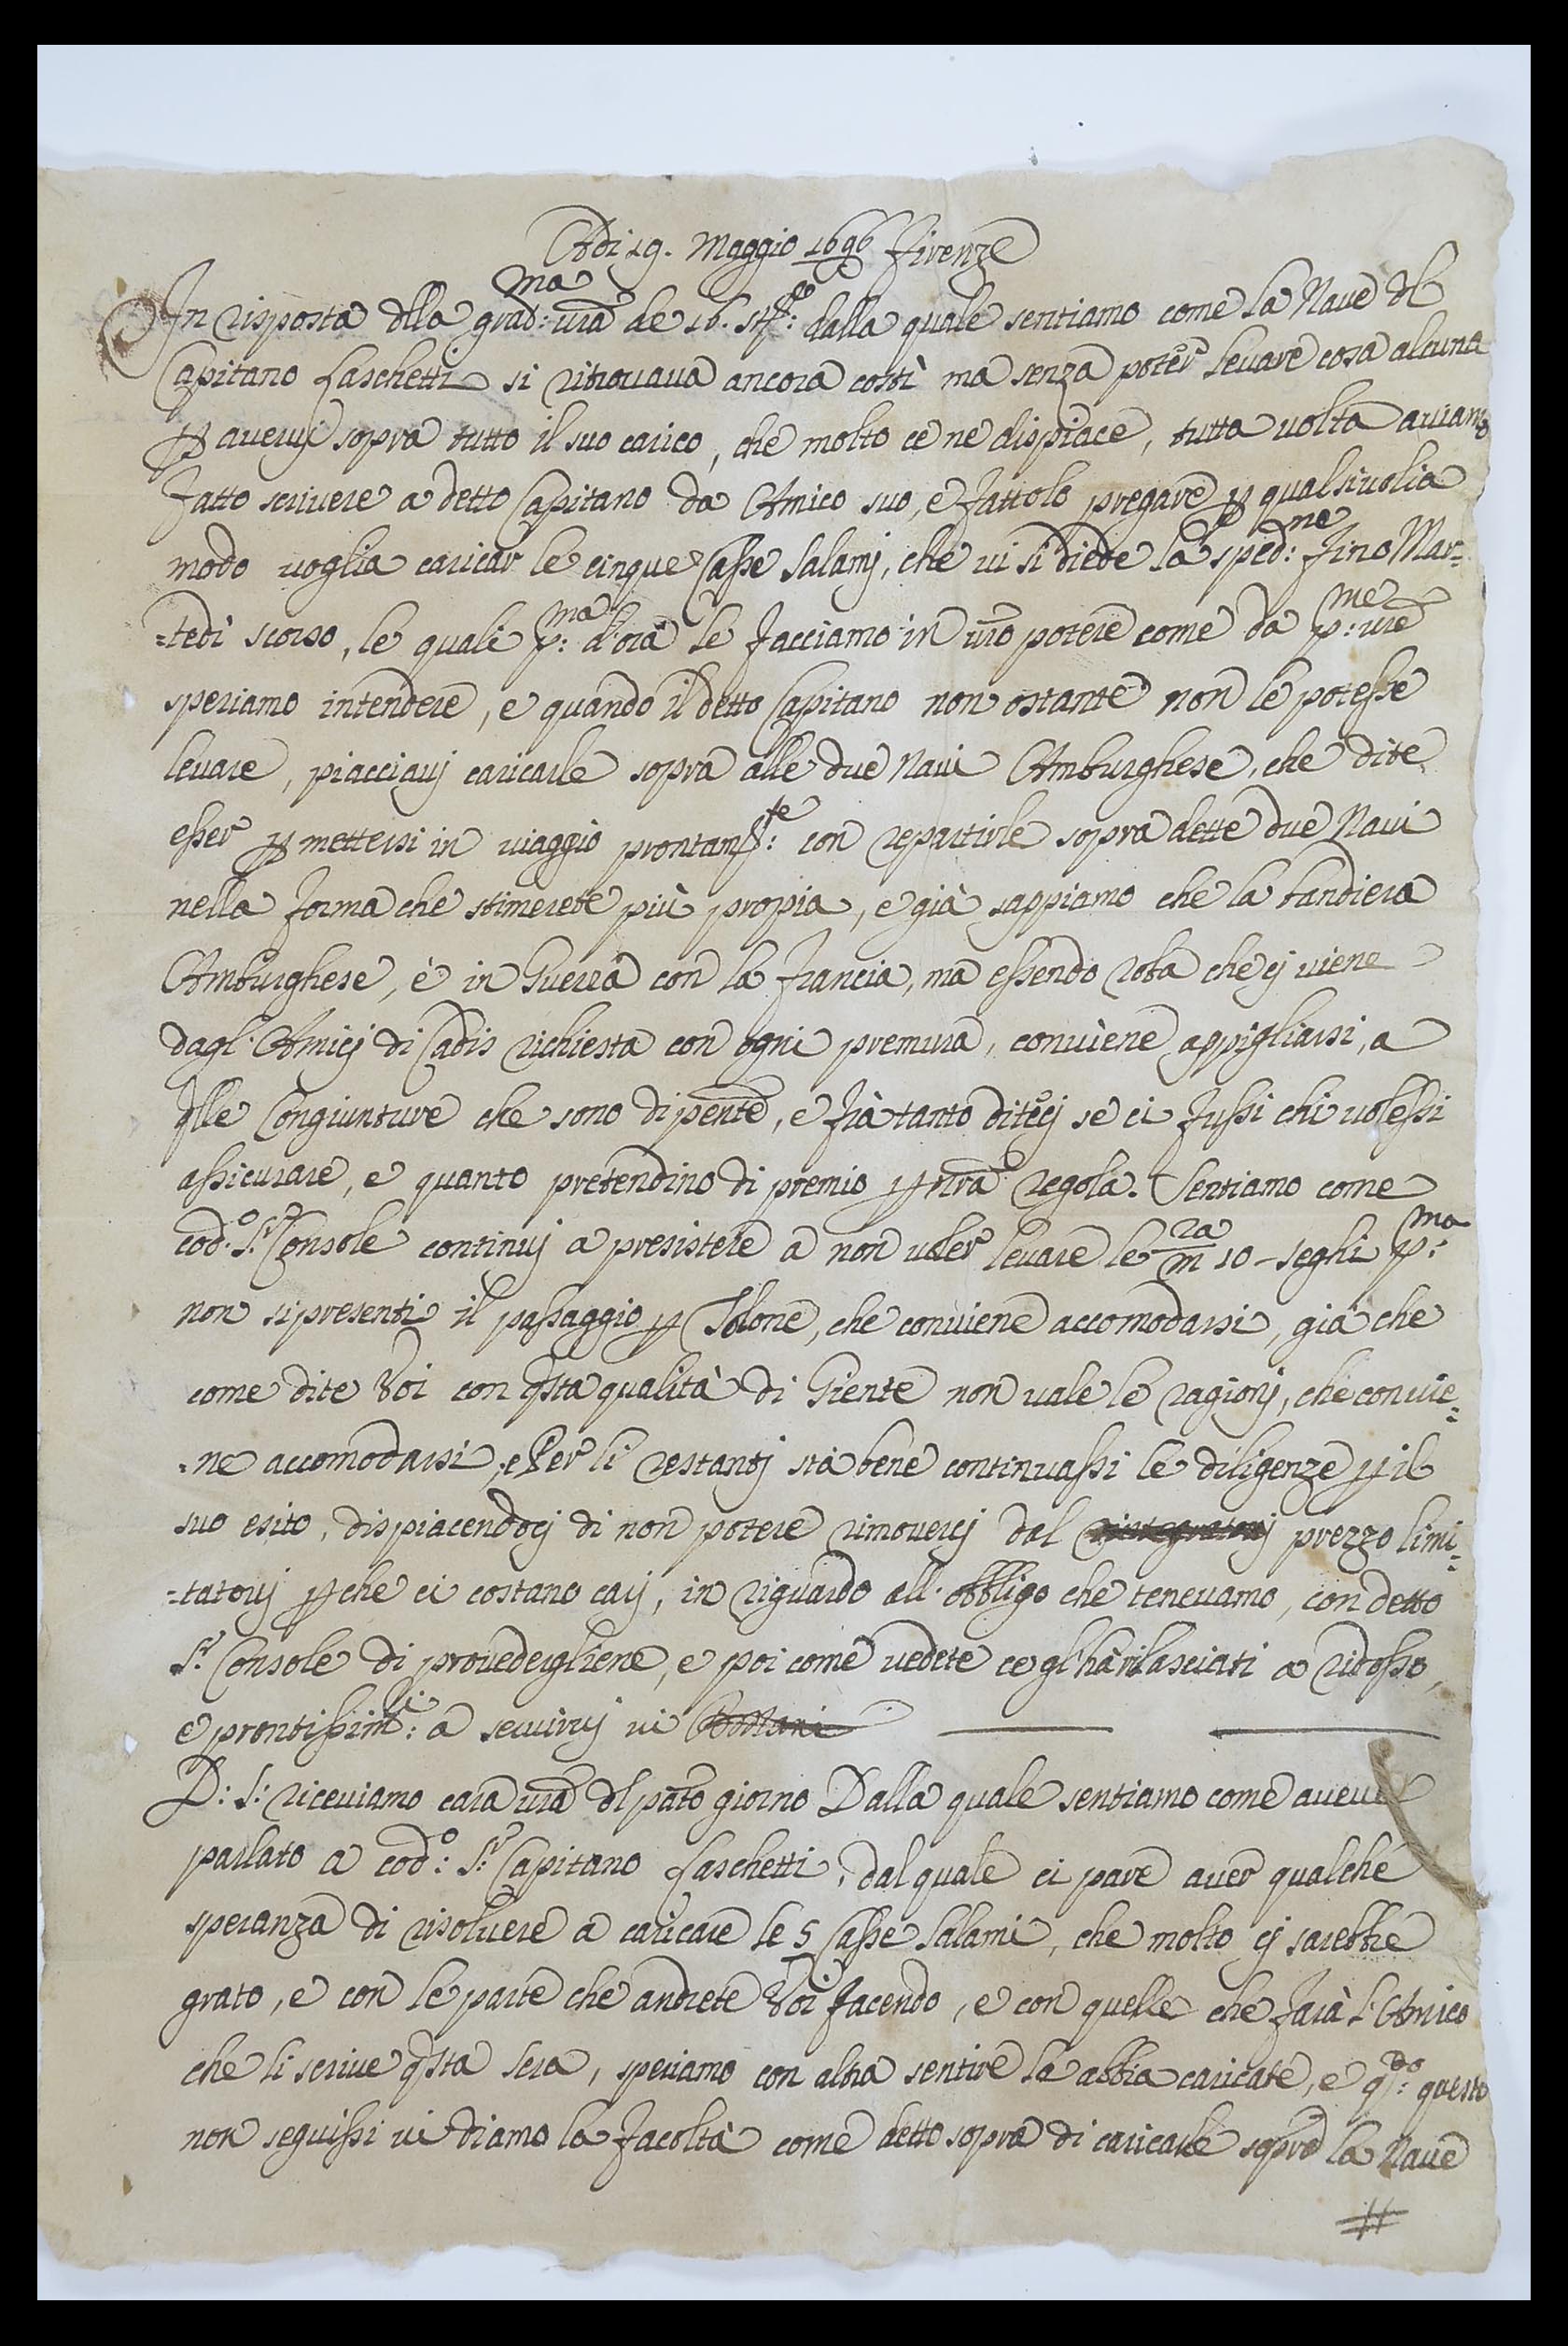 Adi 19. Maggio 1696 Firenze
In risposta dlla grad:ma vra de 16. st:te dalla quale sentiamo come la Naue dl
Capitano Laschetti si ritrouaua ancora costì ma senza poter leuare cosa alcuna
p aueruj sopra tutto il suo carico, che molto ce ne dispiace, tutta uolta auiamo
fatto scriuere a detto Capitano da Amico suo, e fattolo pregare p qualsiuolia
modo uoglia caricar le cinque Casse Salamj, che ui si diede la sped:ne fino Mar-
-tedì scorso, le quali p:ma d'ora le facciamo in vro potere come da p:me vre
speriamo intendere, e quando il detto Capitano non ostante non le potesse
leuare, piacciauj caricarle sopra alle due Naui Amburghese, che dite
esser p mettersi in uiaggio prontam:te con repartirle sopra dette due Naui
nella forma che stimerete più propia, e già sappiamo che la bandiera
Amburghese, è in Guerra con la Francia, ma essendo roba che cj uiene
dagl'Amicj di Cadis richiesta con ogni premura, conuiene appigliarsi, a
qlle Congiunture che sono di pente, e frà tanto ditecj se ci fussi chi uolessi
assicurare, e quanto pretendino di premio p nra regola. Sentiamo come
cod.o S.r Console continuj a presistere a non uoler leuare le ra/m 10 - seghi p:ma
non si presenti il passaggio p Tolone, che conuiene accomodarsi, già che
come dite Voi con qsta qualità di Giente non uale le ragionj, che conuie=
=ne accomodarsi, e Per li restantj sta bene continuassi le diligenze p il
suo esito, dispiacendocj di non potere rimouercj dal prezzo limi=
=tatouj p che ci costano carj, in riguardo all'obbligo che teneuamo, con detto
S.r Console di prouedergliene, e poi come vedete ce gl'hà rilasciati a ridosso,
e prontissim:i a seruiruj ui
D: S: riceuiamo cara vra dl pato giorno Dalla quale sentiamo come aueui
parlato a cod:o S.r Capitano Laschetti, dal quale ci pare auer qualche
speranza di risoluere a caricare le 5 Casse Salami, che molto cj sarebbe
grato, e con le parte che andrete Voi facendo, e con quelle che farà l'Amico
che li scriue qsta sera, speriamo con altra sentire la abbia caricate, e q:do questo
non seguissi ui diamo la facoltà come detto sopra di caricarle sopra la Naue